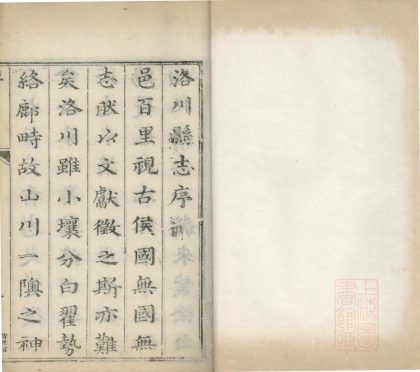 洛川縣志序
邑百里視古侯國無國無
志然以文獻徵之斯亦難
矣洛川雖小壤分白翟勢
絡鄜畤故山川一隩之神
上海圖
書館藏